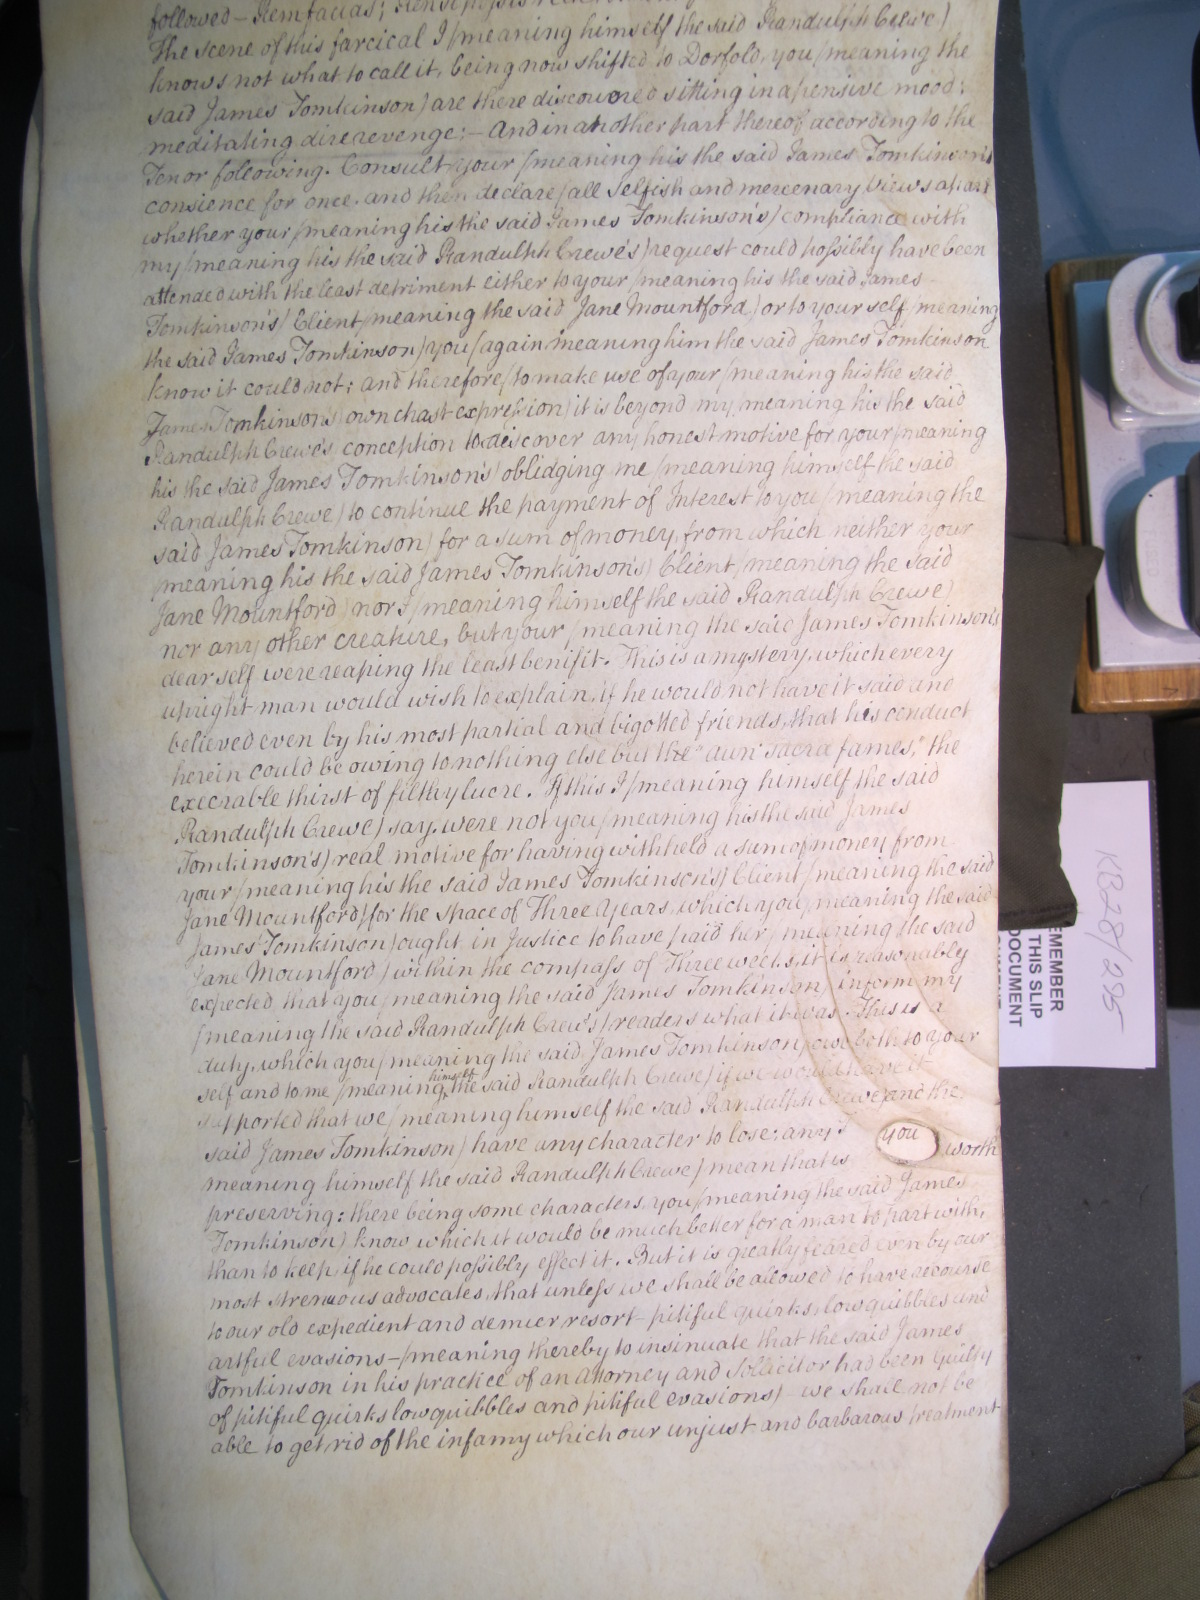 followed – Rem facias;
The scene of this farcical I (meaning himself the said Randulph Crewe)
knows not what to call it, being now shifted to Dorfold, you (meaning the
said James Tomkinson) are there discovered sitting in a pensive mood;
meditating dire revenge:– And in another part thereof according to the
Tenor following. Consult your (meaning his the said James Tomkinson's)
consience for once, and then declare (all selfish and mercenary views apart
whether your (meaning his the said James Tomkinson's) compliance with
my (meaning his the said Randulph Crewe's) request could possibly have been
attended with the least detriment either to your (meaning his the said James
Tomkinson's) Client (meaning the said Jane Mountford) or to your self (meaning
the said James Tomkinson) you (again meaning him the said James Tomkinson
know it could not: and therefore (to make use of your (meaning his the said
James Tomkinson's) own chast expression) it is beyond my (meaning his the said
Randulph Crewe's conception to discover any honest motive for your (meaning
his the said James Tomkinson's) oblidging me (meaning himself the said
Randulph Crewe) to continue the payment of Interest to you (meaning the
said James Tomkinson) for a sum of money, from which neither your
(meaning his the said James Tomkinson's) Client (meaning the said
Jane Mountford) nor I (meaning himself the said Randulph Crewe)
nor any other creature, but your (meaning the said James Tomkinson's
dear self were reaping the least benifit. This is a mystery, which every
upright man would wish to explain, if he would not have it said and
believed even by his most partial and bigotted friends, that his conduct
herein could be owing to nothing else but the "auri sacra fames," the
execrable thirst of filthy lucre. If this I (meaning himself the said
Randulph Crewe) say, were not you (meaning his the said James
Tomkinson's) real motive for having withheld a sum of money from
your (meaning his the said James Tomkinson's) Client (meaning the said
Jane Mountford) for the space of Three Years, which you (meaning the said
James Tomkinson) ought in Justice to have paid her (meaning the said
Jane Mountford) within the compass of Three weeks, it is reasonably
expected that you (meaning the said James Tomkinson) inform my
(meaning the said Randulph Crewe's) readers what it was. This is a
duty, which you (meaning the said James Tomkinson) owe both to your
self and to me (meaning himself the said Randulph Crewe) if we would have it
supported that we (meaning himself the said Randulph Crewe and the
said James Tomkinson) have any character to lose: any I you
meaning himself the said Randulph Crewe) mean that is worth
preserving: there being some characters, you (meaning the said James
Tomkinson) know which it would be much better for a man to part with,
than to keep, if he could possibly effect it. But it is greatly feared even by our
most strenuous advocates, that unless we shall be allowed to have recourse
to our old expedient and dernier resort – pitiful quirks, low quibbles and
artful evasions – (meaning thereby to insinuate that the said James
Tomkinson in his practice of an Attorney and Sollicitor had been Guilty
of pitiful quirks low quibbles and pitiful evasions) – we shall not be
able to get rid of the infamy which our unjust and barbarous treatment
KB28/295
EMEMBER
THIS SLIP
DOCUMENT